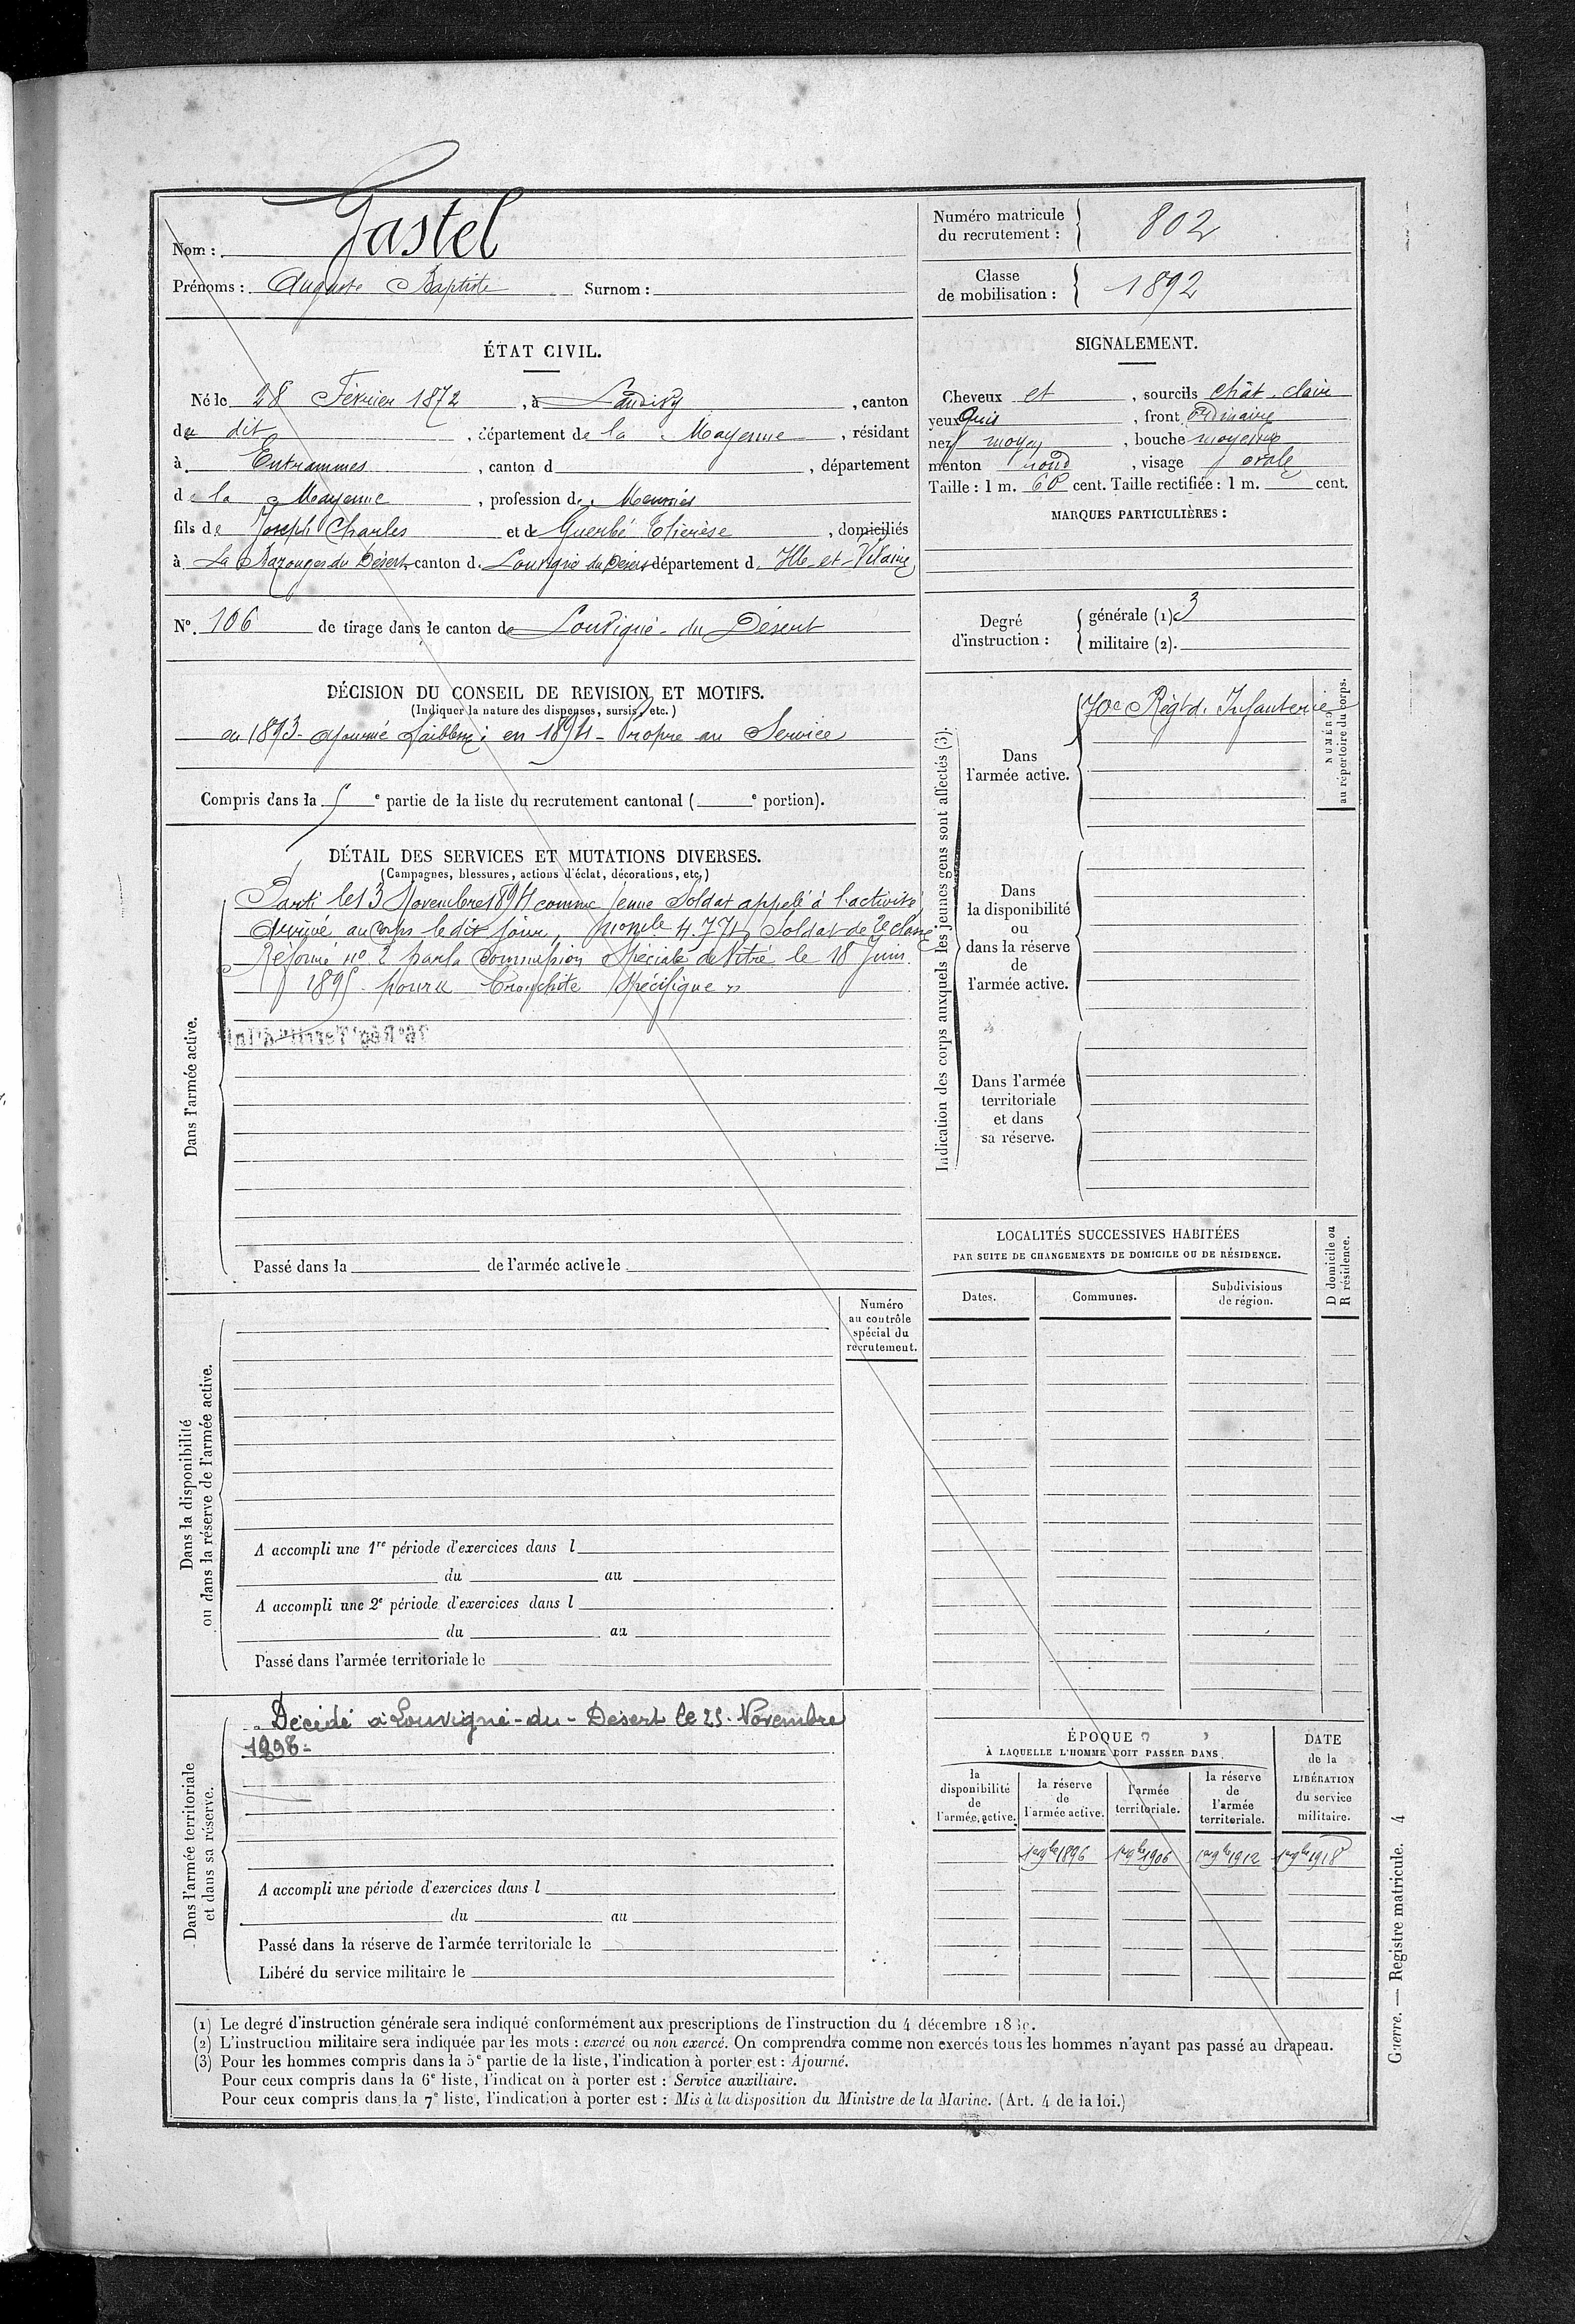 Nom : Gastel
Prénoms : Auguste Baptiste Surnom :
Numéro matricule du recrutement : 802
Classe de mobilisation : 1892
ÉTAT CIVIL.
Né le 28 Février 1872, à Landivy, canton
du dit, département de la Mayenne, résidant
à Entrammes, canton d , département
de la Mayenne, profession de Meunier
fils de Joseph Charles et de Guerbé Thérèse, domiciliés
à La Bazouges du Désert canton d. Louvigné du Désert département d. Ille-et-Vilaine
N°. 106 de tirage dans le canton de Louvigné-du Désert
SIGNALEMENT.
Cheveux et, sourcils chât. clairs
yeux Gris, front Ordinaire
nez moyen, bouche moyenne
menton rond, visage ovale
Taille : 1 m. 60 cent. Taille rectifiée : 1 m. cent.
MARQUES PARTICULIÈRES :
Degré d'instruction : générale (1) 3
militaire (2).
DÉCISION DU CONSEIL DE REVISION ET MOTIFS.
(Indiquer la nature des dispenses, sursis, etc.)
en 1893 - ajourné faiblesse; en 1894 - Propre au Service
Compris dans la 5 e partie de la liste du recrutement cantonal ( e portion).
DÉTAIL DES SERVICES ET MUTATIONS DIVERSES.
(Campagnes, blessures, actions d'éclat, décorations, etc.)
Dans l'armée active.
Parti le 13 Novembre 1894 comme jeune Soldat appelé à l'activité
Arrivé au corps le dit jour, mon le 4.774, Soldat de 2e classe
Réformé no 2 par la Commission Spéciale de Vitré le 18 Juin
1895 pour Bronchite Spécifique »
Passé dans la de l'armée active le
Indication des corps auxquels les jeunes gens sont affectés (3).
Dans l'armée active.
70e Régt d. Infanterie
NUMÉRO au répertoire du corps.
Dans la disponibilité ou dans la réserve de l'armée active.
Dans l'armée territoriale et dans sa réserve.
LOCALITÉS SUCCESSIVES HABITÉES
PAR SUITE DE CHANGEMENTS DE DOMICILE OU DE RÉSIDENCE.
Dates. Communes. Subdivisions de région.
D domicile ou R résidence.
Dans la disponibilité ou dans la réserve de l'armée active.
Numéro au contrôle spécial du recrutement.
A accompli une 1re période d'exercices dans l
du au
A accompli une 2e période d'exercices dans l
du au
Passé dans l'armée territoriale le
Dans l'armée territoriale et dans sa réserve.
Décédé à Louvigné-du-Désert le 25 Novembre
1898.=
A accompli une période d'exercices dans l
du au
Passé dans la réserve de l'armée territoriale le
Libéré du service militaire le
ÉPOQUE
À LAQUELLE L'HOMME DOIT PASSER DANS
la disponibilité de l'armée active.
la réserve de l'armée active.
l'armée territoriale.
la réserve de l'armée territoriale.
DATE de la LIBÉRATION du service militaire.
1er 9bre 1896 1er 9bre 1906 1er 9bre 1912 1er 9bre 1918
(1) Le degré d'instruction générale sera indiqué conformément aux prescriptions de l'instruction du 4 décembre
(2) L'instruction militaire sera indiquée par les mots : exercé ou non exercé. On comprendra comme non exercés tous les hommes n'ayant pas passé au drapeau.
(3) Pour les hommes compris dans la 5e partie de la liste, l'indication à porter est : Ajourné.
Pour ceux compris dans la 6e liste, l'indicat on à porter est : Service auxiliaire.
Pour ceux compris dans la 7e liste, l'indication à porter est : Mis à la disposition du Ministre de la Marine. (Art. 4 de la loi.)
Guerre. — Registre matricule. 4